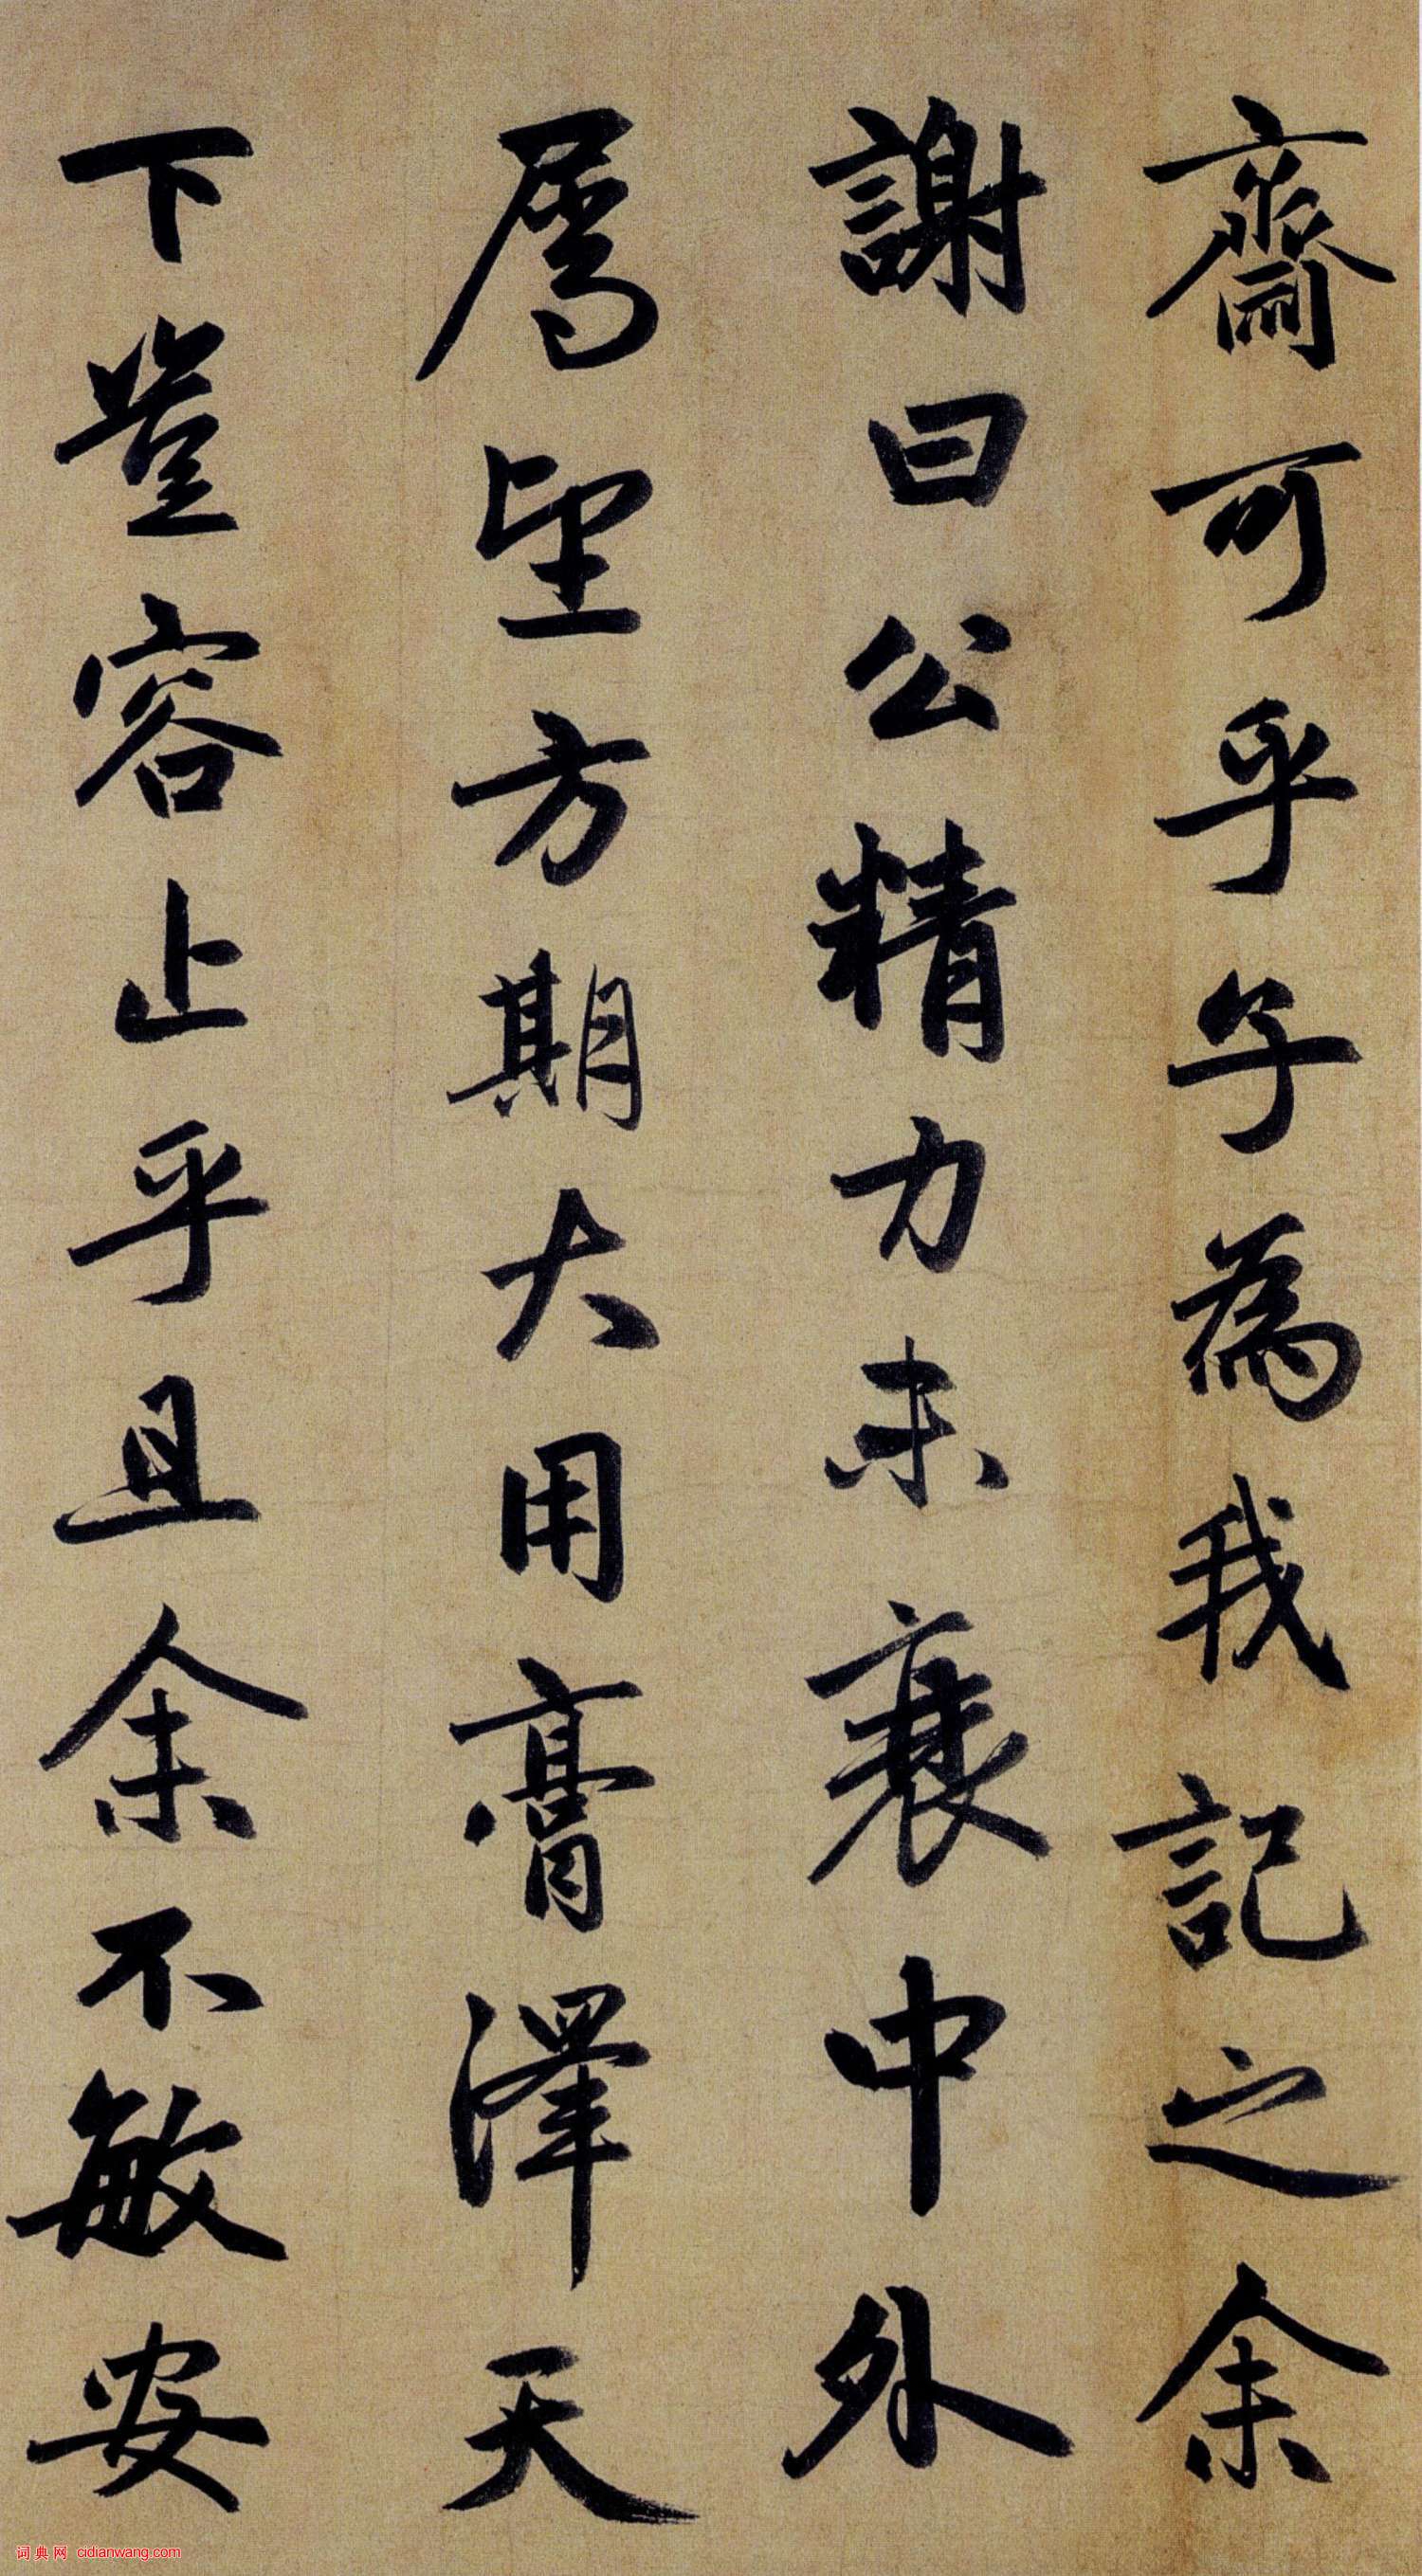 齋可乎子為我記之余
謝曰公精力未衰中外
属望方期大用膏澤天
下豈容止乎且余不敏安
词典网 cidianwang.com